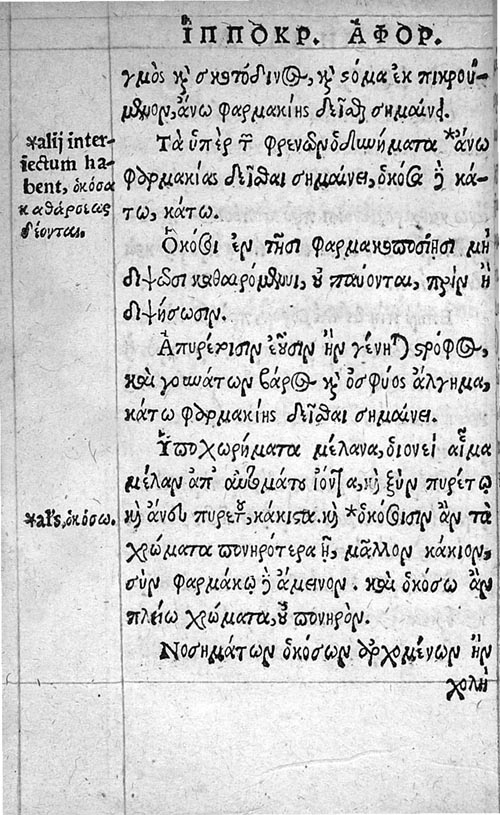 ἹΠΠΟΚΡ. ἈΦΟΡ.
γμὸς κ̀ σκοτόδινος, κ̀ στόμα ἐκπικρού-
μενον, ἄνω φαρμακίης δεῖσθαι σημαίνει.
Τὰ ὑπὲρ τῶν φρενῶν ὀδυνήματα *ἄνω
φαρμακίας δεῖσθαι σημαίνει, ὁκόσα ἢ κά-
τω, κάτω.
Ὁκόσοι ἐν τῇσι φαρμακοποσίῃσι μὴ
διψῶσι καθαιρόμενοι, οὐ παύονται, πρὶν ἢ
διψήσωσιν.
Ἀπυρέτοισιν ἐοῦσιν ἢν γένηται στρόφος,
καὶ γονάτων βάρος κ̀ ὀσφύος ἄλγημα,
κάτω φαρμακίης δεῖσθαι σημαίνει.
Ὑποχωρήματα μέλανα, ὁιονεὶ αἷμα
μέλαν ἀπ' αὐτομάτου ἰόντα, κ̀ ξὺν πυρέτῳ
κ̀ ἄνευ πυρετοῦ, κάκιστα. κ̀ *ὁκόσοισιν ἂν τὰ
χρώματα πονηρότερα ᾖ, μᾶλλον κάκιον,
σὺν φαρμάκῳ δὲ ἄμεινον. καὶ ὁκόσω ἂν
πλείω χρώματα, οὐ πονηρὸν.
Νοσημάτων ὁκόσων ἀρχομένων ἢν
χολὴ
*alij inter-
iectum ha-
bent, ὁκόσα
καθάρσιας
δέονται.
*αλ̓ς, ὁκόσω.